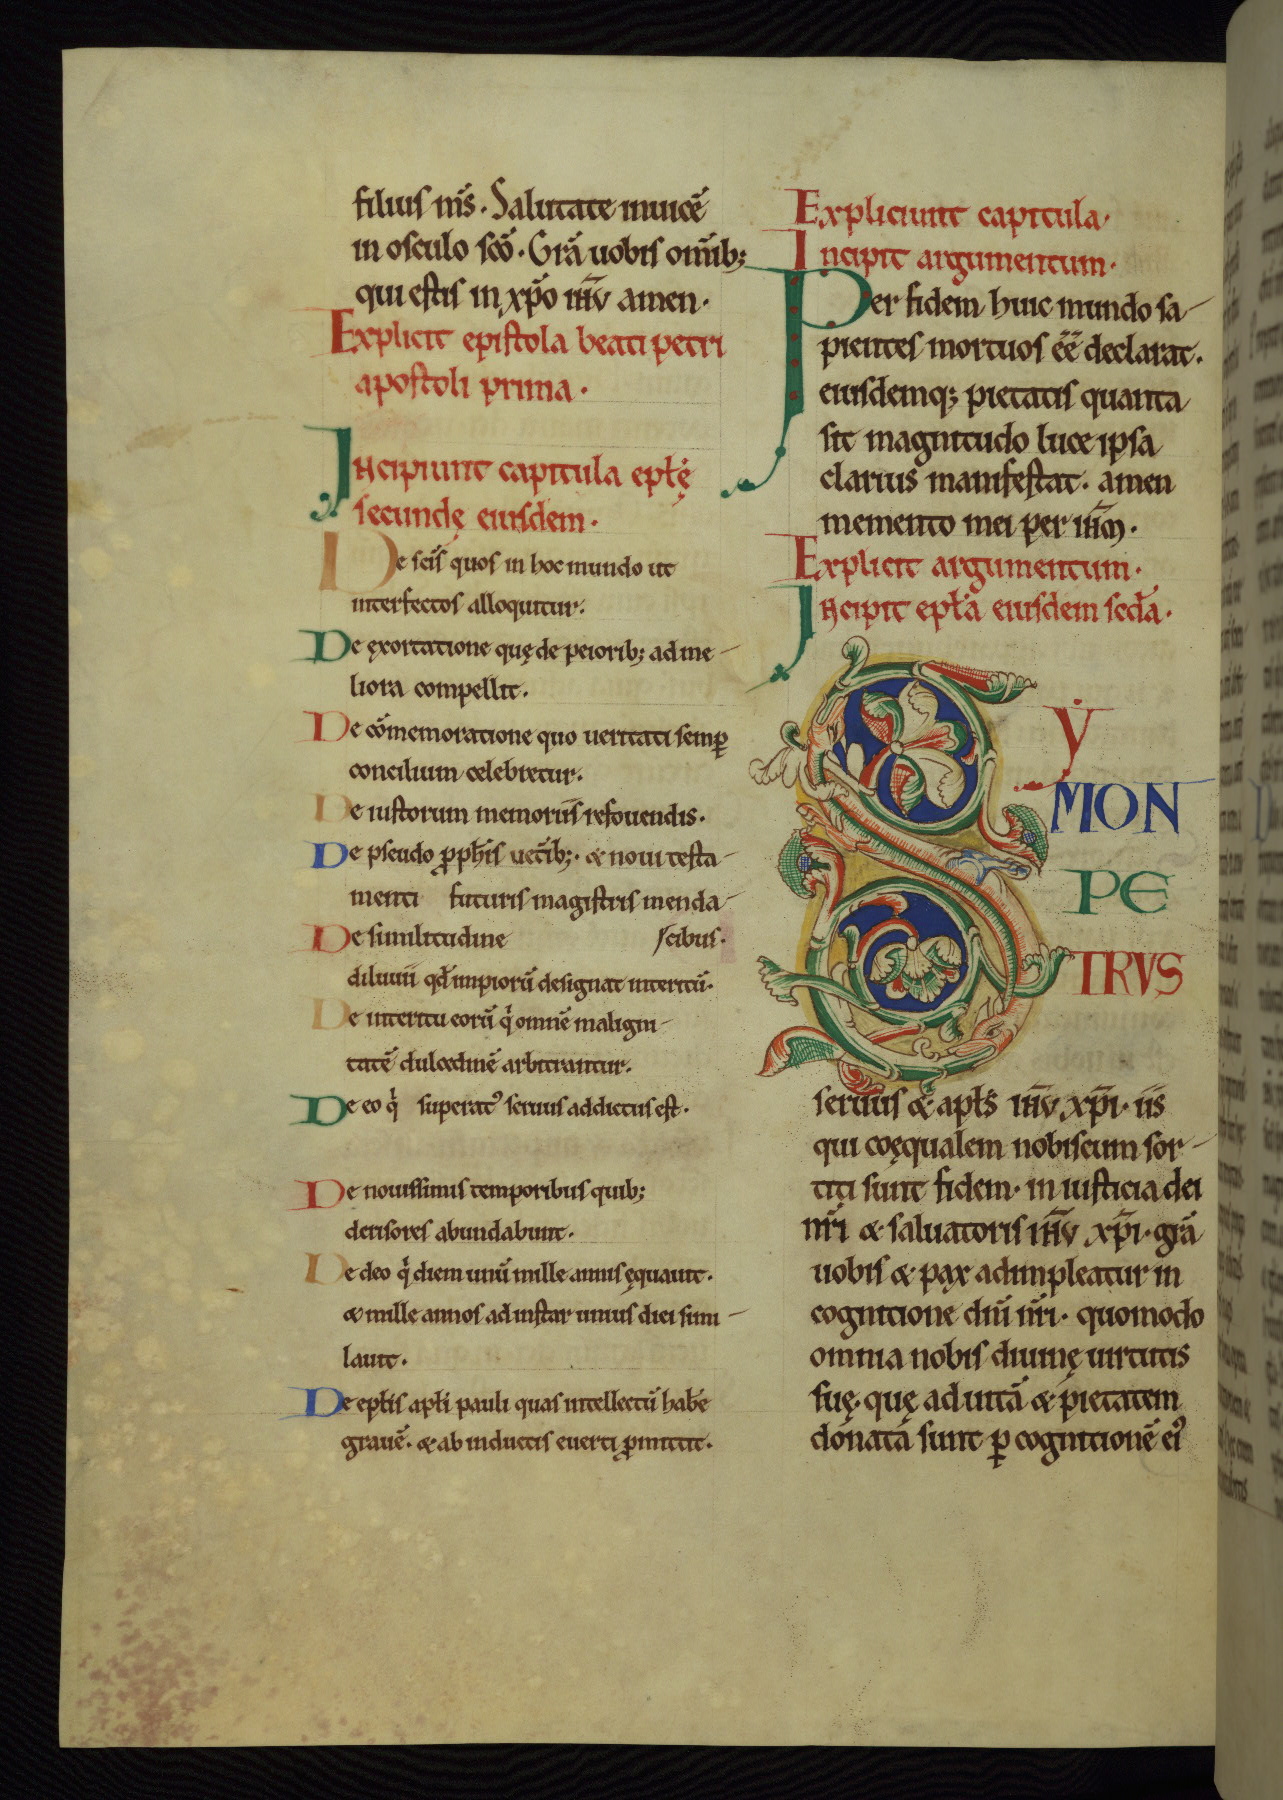 filius m̅s. Salutate inuicē
in osculo sc̅o. Gr̅a uobis om̅ib;
qui estis in xp̅o ih̅u amen.
Explicit epistola beati petri
apostoli prima.
Incipiunt capitula epl̅ę
secundę eiusdem.
De sc̅is quos in hoc mundo ut
interfectos alloquitur.
De ęxortatione quę de peiorib; ad me-
liora compellit.
De cōmemoratione quo ueritati semꝑ
concilium celebretur.
De iustorum memoriis refouendis.
De pseudo ꝓph̅is uet̅ib;. & noui testa-
menti futuris magistris menda-
De similitudine cibus.
diluuii qd̅ impiorū designat interitū.
De interitu eorū qͥ omnē malign-
itatē dulcedinē arbitrantur.
De eo qͥ superatꝰ seruus addictus est.
De nouissimis temporibus quib;
derisores abundabunt.
De deo qͥ diem unū mille annis ęquauit.
& mille annos ad instar unius diei simi-
lauit.
De epl̅is apl̅i pauli quas intellectū habe̅
grauē. & ab indoctis euerti ꝓmittit.
Expliciunt capitula.
Incipit argumentum.
Per fidem huic mundo sa-
pientes mortuos ee̅ declarat.
eiusdemq; pietatis quanta
sit magnitudo luce ipsa
clarius manifestat. amen
memento mei per ih̅m.
Explicit argumentum.
Incipit epl̅a eiusdem sc̅da.
Sy
MON
PE
TRVS
seruus & apl̅s ih̅u xp̅i. iis
qui coęqualem nobiscum sor-
titi sunt fidem. in iusticia dei
nr̅i & saluatoris ih̅u xp̅i. gr̅a
uobis & pax adimpleatur in
cognitione dn̅i nr̅i. quomodo
omnia nobis diuinę uirtutis
suę. quę ad uitā & pietatem
donata sunt ꝑ cognitionē eiꝰ